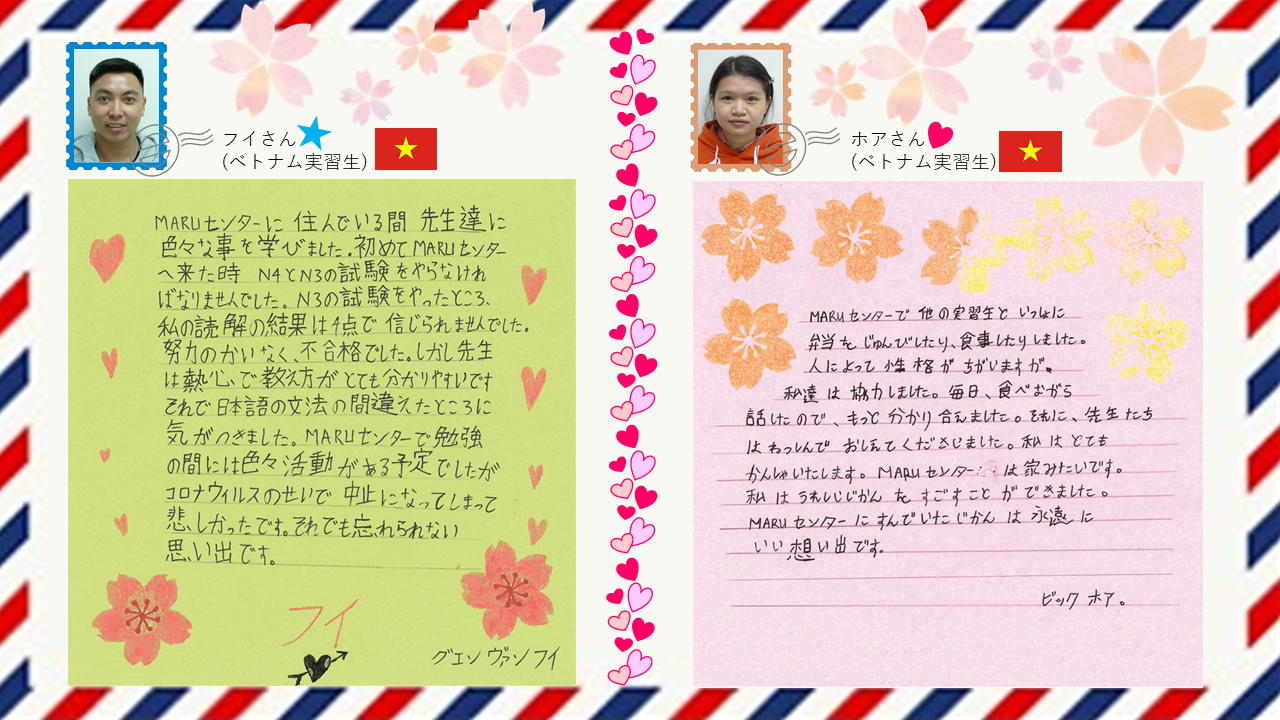 フイさん
(ベトナム実習生)
MARUセンターに 住んでいる間 先生達に
色々な事を学びました。初めてMARUセンター
へ来た時 N4とN3の試験をやらなけれ
ばなりませんでした。N3の試験をやったところ、
私の読解の結果は4点で 信じられませんでした。
努力のかいなく、不合格でした。しかし先生
は熱心で教え方がとても分かりやすいです
それで日本語の文法の間違えたところに
気がつきました。MARUセンターで勉強
の間には色々活動がある予定でしたが
コロナウィルスのせいで 中止になってしまって
悲しかったです。それでも忘れられない
思い出です。
フイ
グエン ヴァン フイ
ホアさん
(ベトナム実習生)
MARUセンターで 他の実習生と いっしょに
弁当を じゅんびしたり、食事したりしました。
人によって 性格が ちがいますが。
私達は 協力しました。毎日、食べながら
話したので、もっと 分かり合えました。それに、先生たち
は ねっしんで おしえてくださいました。私は とても
かんしゃいたします。MARUセンターは 家みたいです。
私は うれしいじかんを すごすことができました。
MARUセンターに すんでいた じかんは 永遠に
いい 想い出です。
ビック ホア。